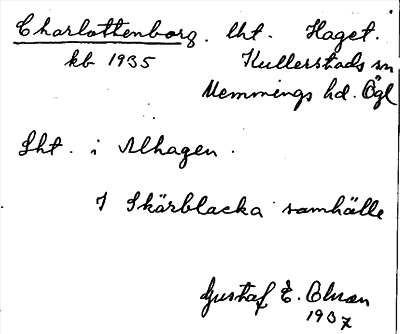 Charlottenborg. lht. Haget.
kb 1935 Kullerstads sn
Memmings hd. Ögl
Lht. i Alhagen.
I Skärblacka samhälle
Gustaf E. Olsson
1937